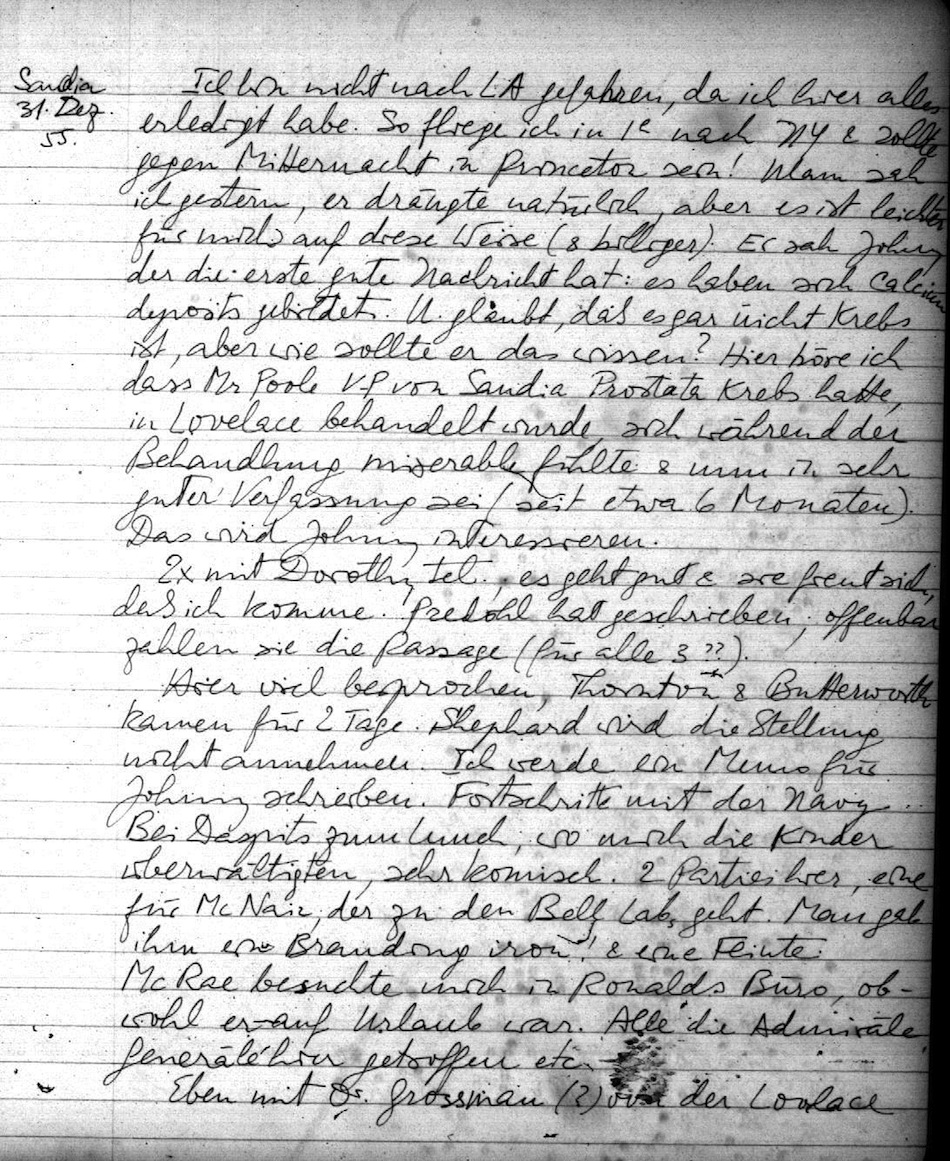 Sandia
31. Dez.
55.
Ich bin nicht nach LA gefahren, da ich hier alles
erledigt habe. So fliege ich in 1e nach NY & sollte
gegen Mitternacht in Princeton sein! Ulam sah
ich gestern, er drängte natürlich, aber es ist leichter
für mich auf diese Weise (& billiger). Er sah Johnny
der die erste gute Nachricht hat: es haben sich Calcium
deposits gebildet. U. glaubt, daß es gar nicht Krebs
ist, aber wie sollte er das wissen? Hier höre ich
dass Mr Poole V.P. von Sandia Prostata Krebs hatte,
in Lovelace behandelt wurde, sich während der
Behandlung miserable fühlte & nun in sehr
guter Verfassung sei (seit etwa 6 Monaten).
Das wird Johnny interessieren.
2x mit Dorothy tel.; es geht gut & sie freut sich,
daß ich komme. Predöhl hat geschrieben; offenbar
zahlen sie die Passage (für alle 3 ??).
Hier viel besprochen, Thornton & Butterworth
kamen für 2 Tage. Shephard wird die Stellung
nicht annehmen. Ich werde ein Memo für
Johnny schreiben. Fortschritte mit der Navy ..
Bei Daspits zum Lunch, wo mich die Kinder
überwältigten, sehr komisch. 2 Parties hier, eine
für McNair, der zu den Bell Labs geht. Man gab
ihm ein Branding iron! & eine Flinte.
McRae besuchte mich in Ronalds Büro, ob-
wohl er auf Urlaub war. Alle die Admiräle
Generäle hier getroffen etc.
Eben mit Dr. Grossman (?) von der Lovlace